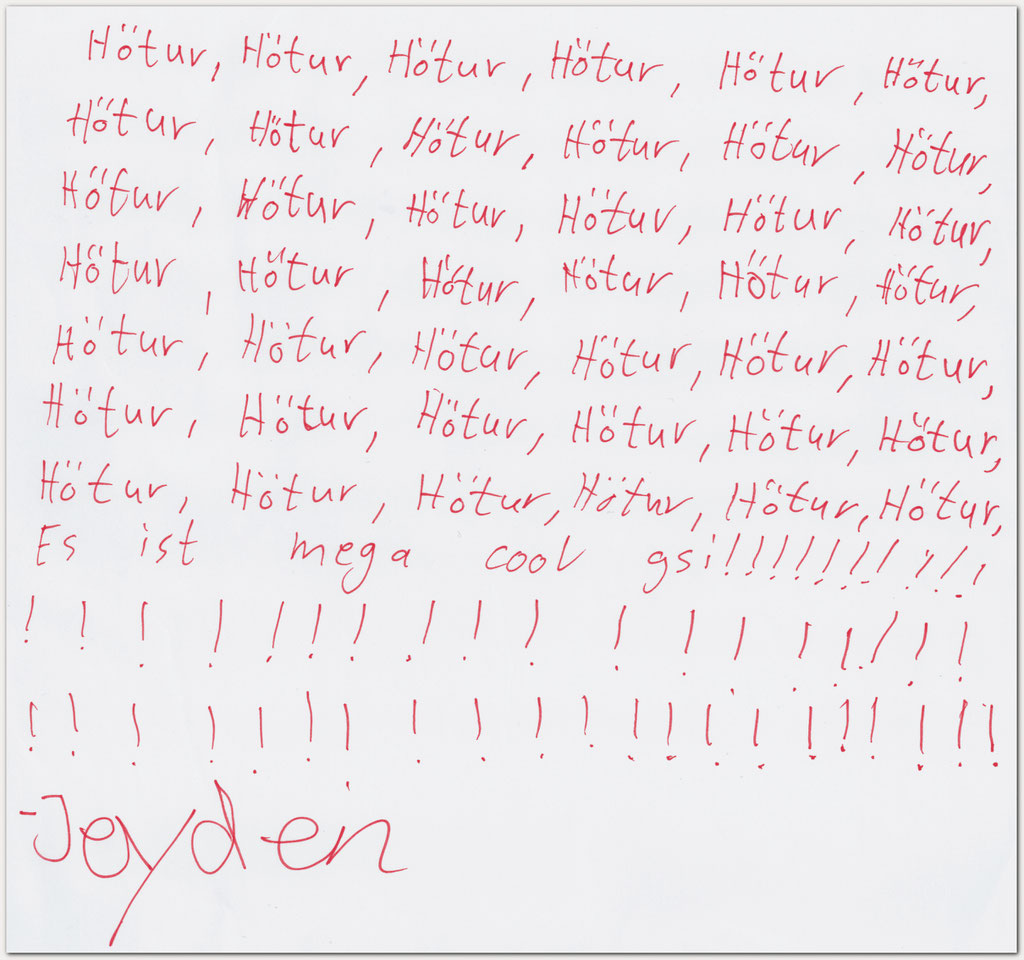 Hötur, Hötur, Hötur, Hötur, Hötur, Hötur,
Hötur, Hötur, Hötur, Hötur, Hötur, Hötur,
Hötur, Hötur, Hötur, Hötur, Hötur, Hötur,
Hötur, Hötur, Hötur, Hötur, Hötur, Hötur,
Hötur, Hötur, Hötur, Hötur, Hötur, Hötur,
Hötur, Hötur, Hötur, Hötur, Hötur, Hötur,
Hötur, Hötur, Hötur, Hötur, Hötur, Hötur,
Es ist mega cool gsi!!!!!!!!!!
! ! ! ! ! ! ! ! ! ! ! ! ! ! ! ! ! !
! ! ! ! ! ! ! ! ! ! ! ! ! ! ! ! ! ! ! ! ! !
-Jayden